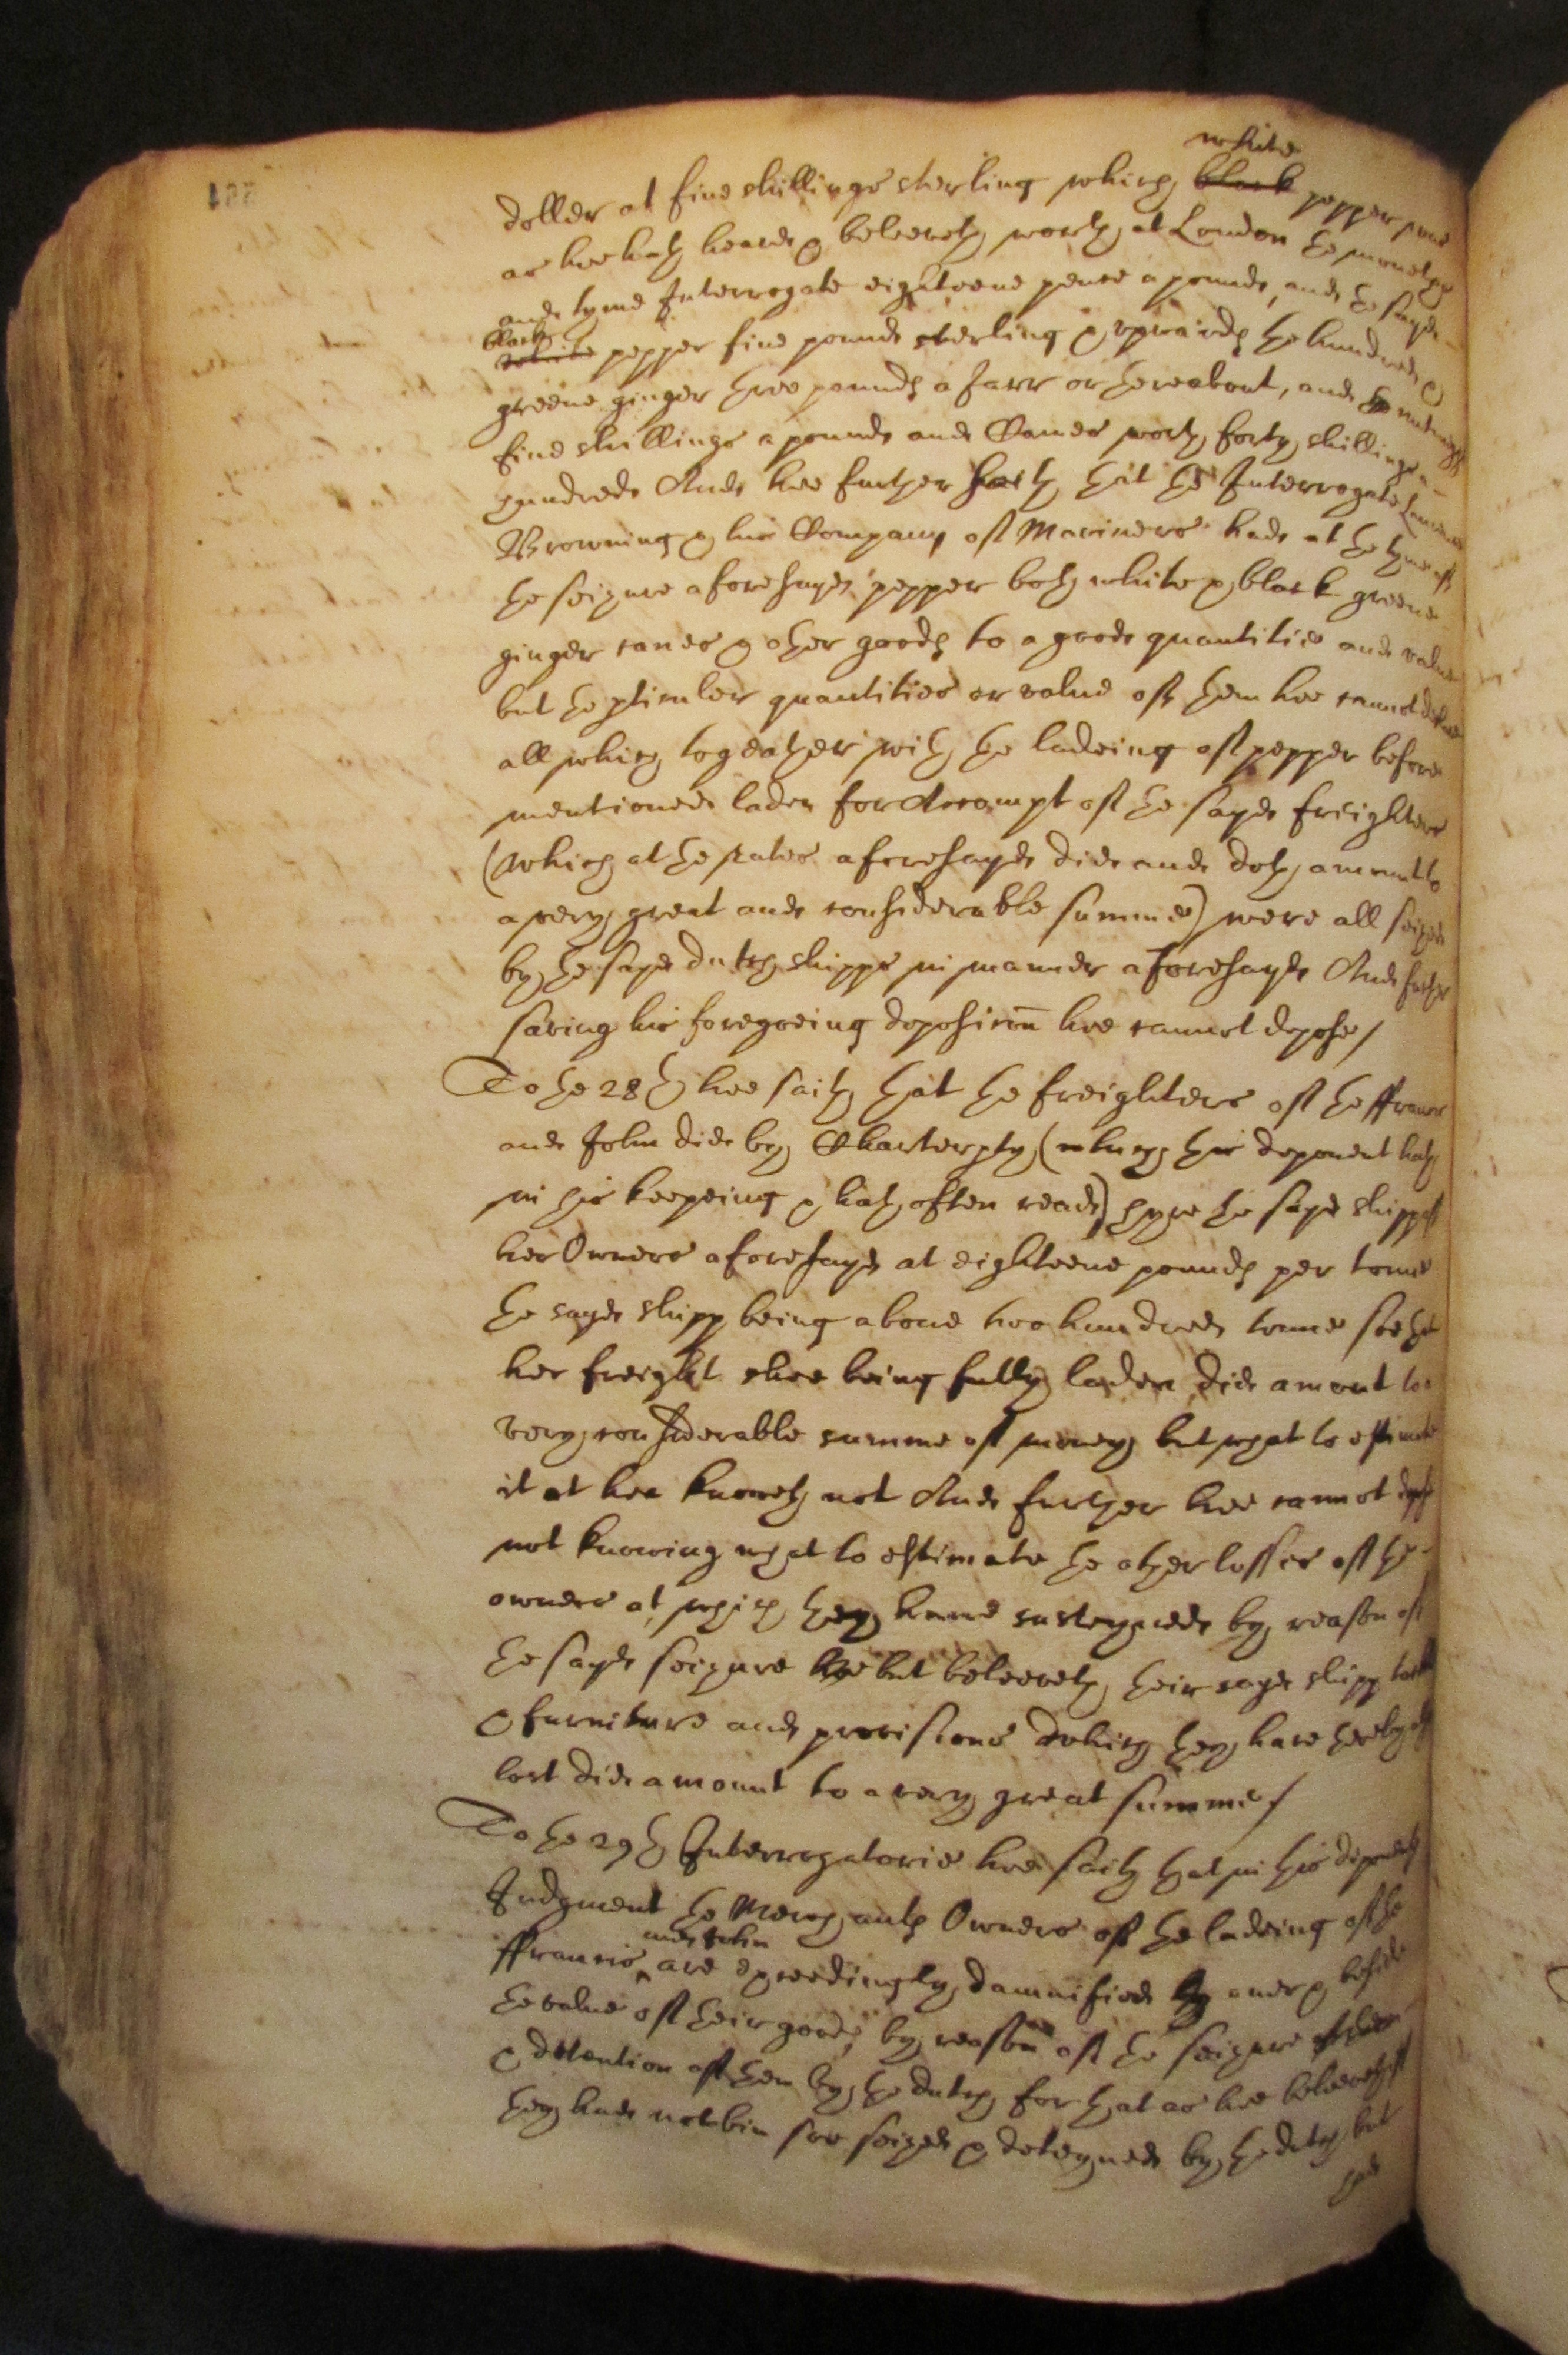 white
doller at five shillings sterling which black pepper was
as hee hath heard & beleeveth worth at London the moneth
and tyme Interrogate eighteene pence a pound, and the sayd
black
white pepper five pounds sterling & upwards the hundred &
greene ginger three pounds a Jarr or thereabout, and the nutmeggs
five shillings a pound and Canes worth forty shillings a
hundred And hee further saith that the Interrogate
Browning & his Company of Mariners had at the tyme of
the seizure aforesayd pepper both white & black greene
ginger canes & other goods to a good quantitie and value
but the pticuler quantities or value of them hee cannot
all which togeather with the ladeing of pepper before
mentioned laden for Accompt of the sayd freighters
(which at the rates aforesayd did and doth amount to
a very great and considerable summe) were all seized
by the sayd dutch shipps in manner aforesayd And further
saving his foregoeing deposicon hee cannot depose/
To the 28th hee saith that the freighters of the ffrancis
and John did by Charterpty (which this deponent hath
in his keepeing & hath often read) hyre the sayd shipp of
her Owners aforesayd at eighteene pounds per tonne
the sayd shipp being above two hundred tonns soe that
her freight shee being fully laden did amount to a
very considerable summe of money but what to estimate
it at hee knoweth not And further hee cannot depose
not knowing what to estimate the other losses of the
owners at which they have susteyned by reason of
the sayd seizure hee but beleeveth their sayd shipp tackle
& furniture and provisions which they have thereby
lost did amount to a very great summe/
To the 29th Interrogatorie hee saith that in his deponents
Judgment the Merchants Owners of the ladeing of the
and John
ffrancis ^ are exceedingly damnified by over & beside
the value of their goods, by reason of the seizure of them
& detention of them by the dutch for that as hee beleeveth if
they had not bin soe seized & deteyned by the dutch but
had